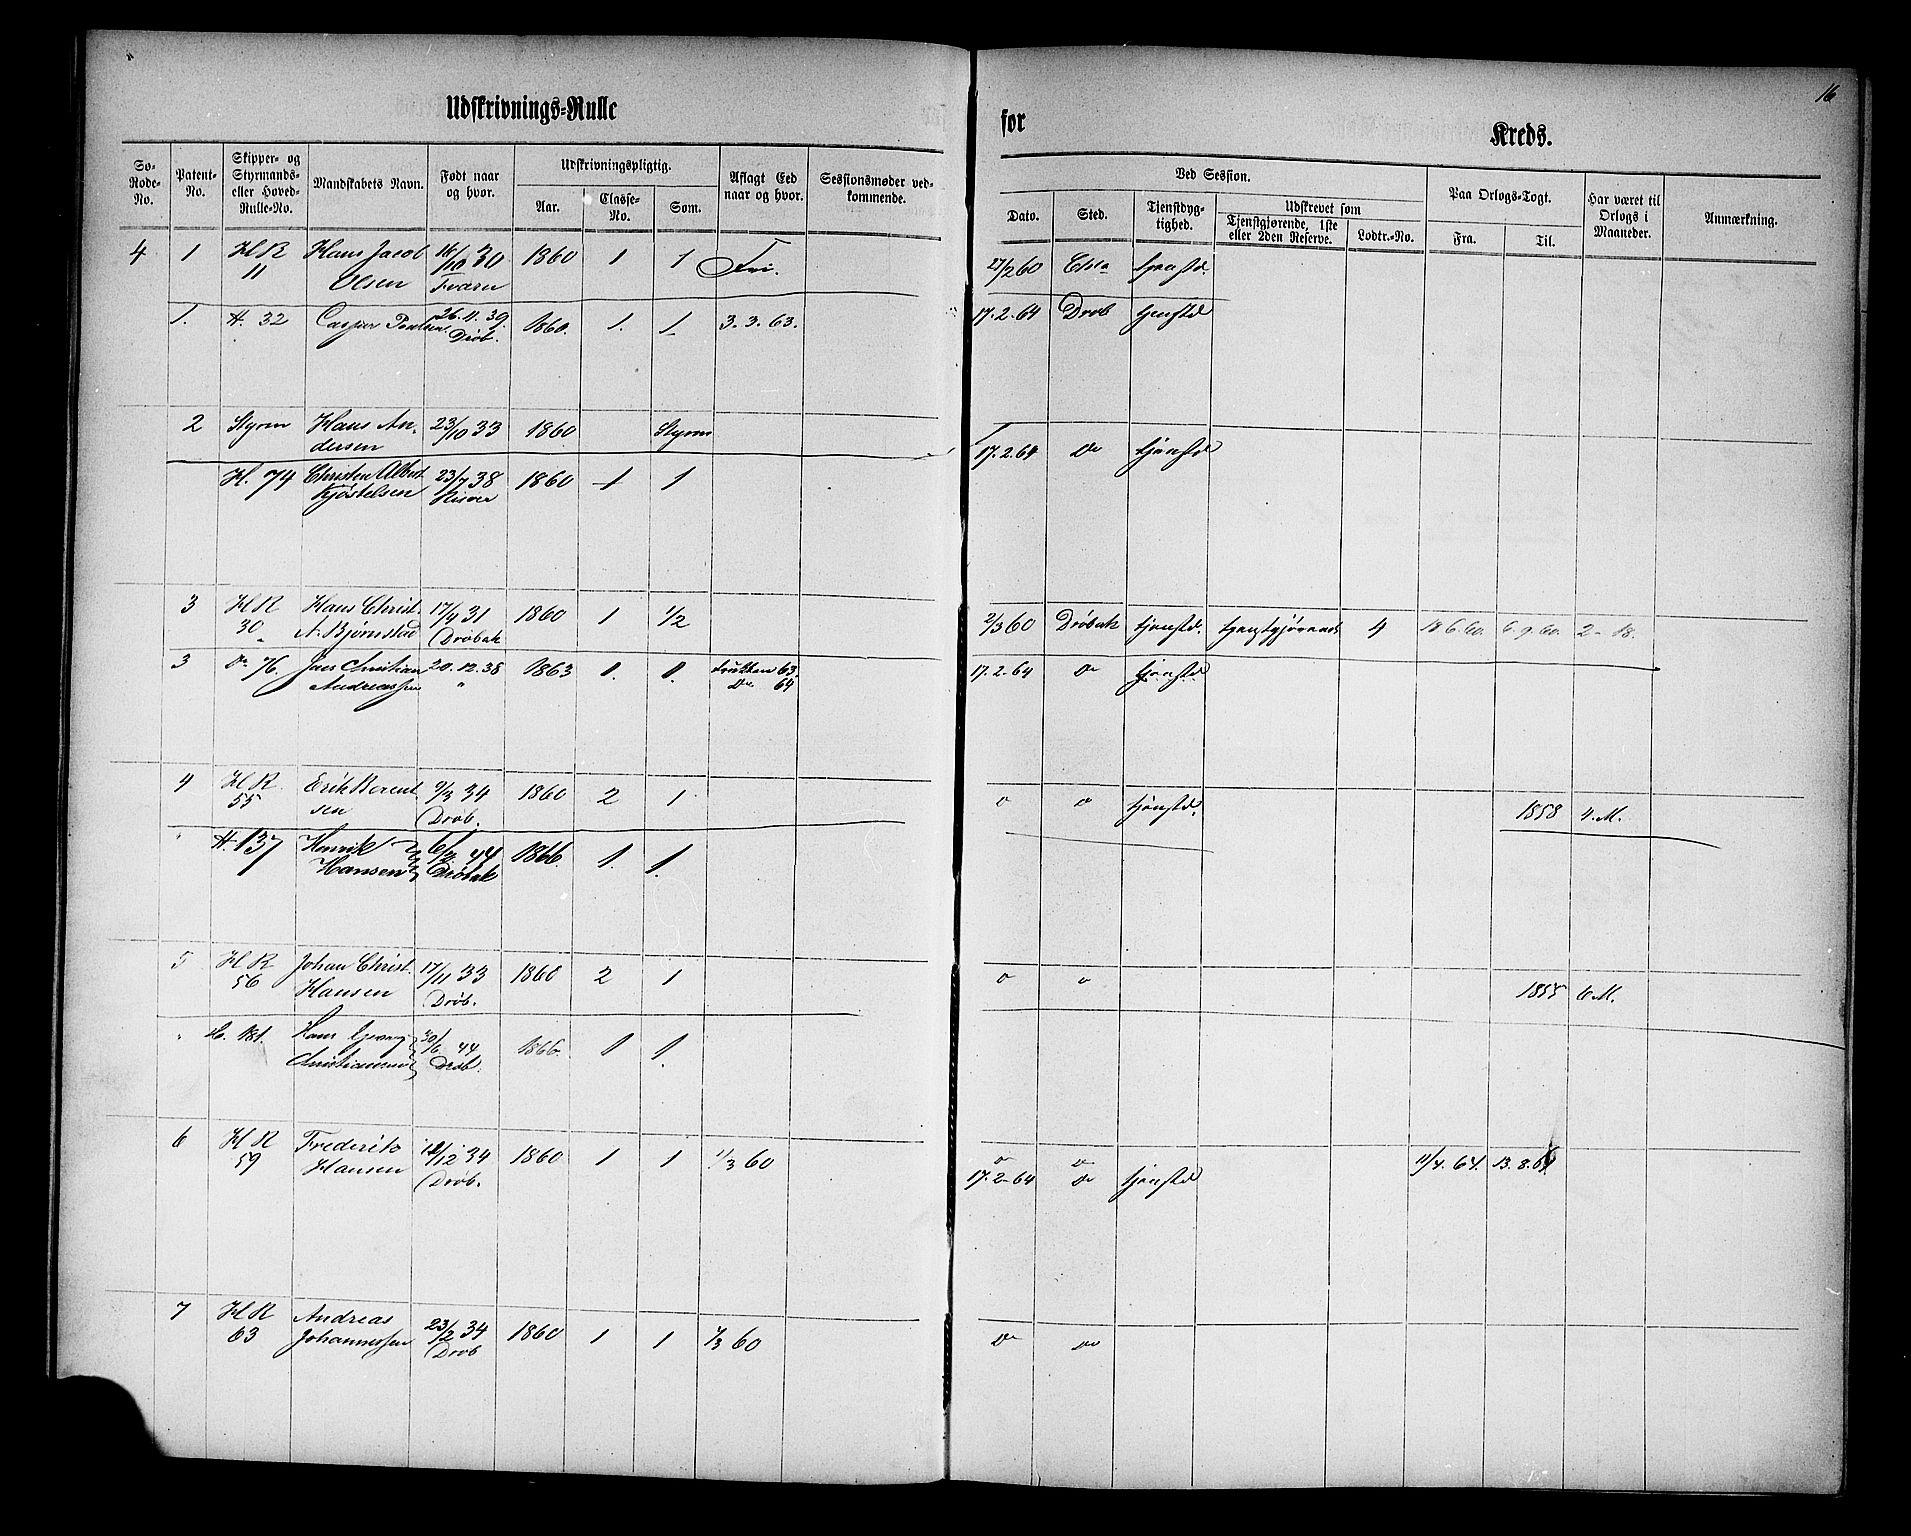 16
Udskrivnings-Rulle
for
Kreds.
So-Rode-No.
Patent-No.
Skipper- og Styrmands- eller Hoved-Rulle-No.
Mandskabets Navn.
Født naar og hvor.
Udskrivningspligtig.
Aar.
Classe-No.
Som.
Aflagt Eed naar og hvor.
Sessionsmøder vedkommende.
Ved Session.
Dato.
Sted.
Tjenstdygtighed.
Udskrevet som
Tjenstgjørende, 1ste eller 2den Reserve.
Lodtr.-No.
Paa Orlogs-Togt.
Fra.
Til.
Har været til Orlogs i Maaneder.
Anmærkning.
4 1 H R 11 Hans Jacob Olsen 16/10 30 1860 1 1 Fri. 27/2 60 tjenstd.
1. H. 32 Casper 26.11.39. Drøb. 1860. 1. 1. 3.3.63. 17.2.64 Drøb tjenstd
2 Styrm Hans Andersen 23/10 33 1860 Styrm
H. 74 Christen Albert Kjøstelsen 23/7 38 1860 1 1 17.2.64 Do tjenstd
3 H R 30 Hans Christ. A. Bjørnstad 17/4 31 Drøbak 1860 1 1/2 2/3 60 Drøbak tjenstd. tjenstgjørende 4 18.6.60. 6.9.60. 2- 18.
3 Do 76. Jens Christian Andreassen 20.12.38 " 1863 1. 1. 63. Do 64 17.2.64 Do tjenstd
4 H R. 55 Erik Berentsen 9/3 34 Drøb. 1860 2 1 " " tjenstd. 1858 4.M.
" H. 137 Henrik Hansen 44 Drøbak 1866. 1. 1.
5 H R 56 Johan Christ. Hansen 17/11 33 Drøb. 1860 2 1 " " 1855 6 M.
" H. 181. Hans Georg Christiansen 30/6. 44 Drøb. 1866. 1 1.
6 H R 59 Frederik Hansen 12/12 34 Drøb. 1860 1 1 1/3 60 " "
17.2-64 Do tjenstd 11/4. 64. 13.8.64
7 H R 63 Andreas Johannessen 23/2 34 Drøb 1860 1 1 1/3 60 Do Do